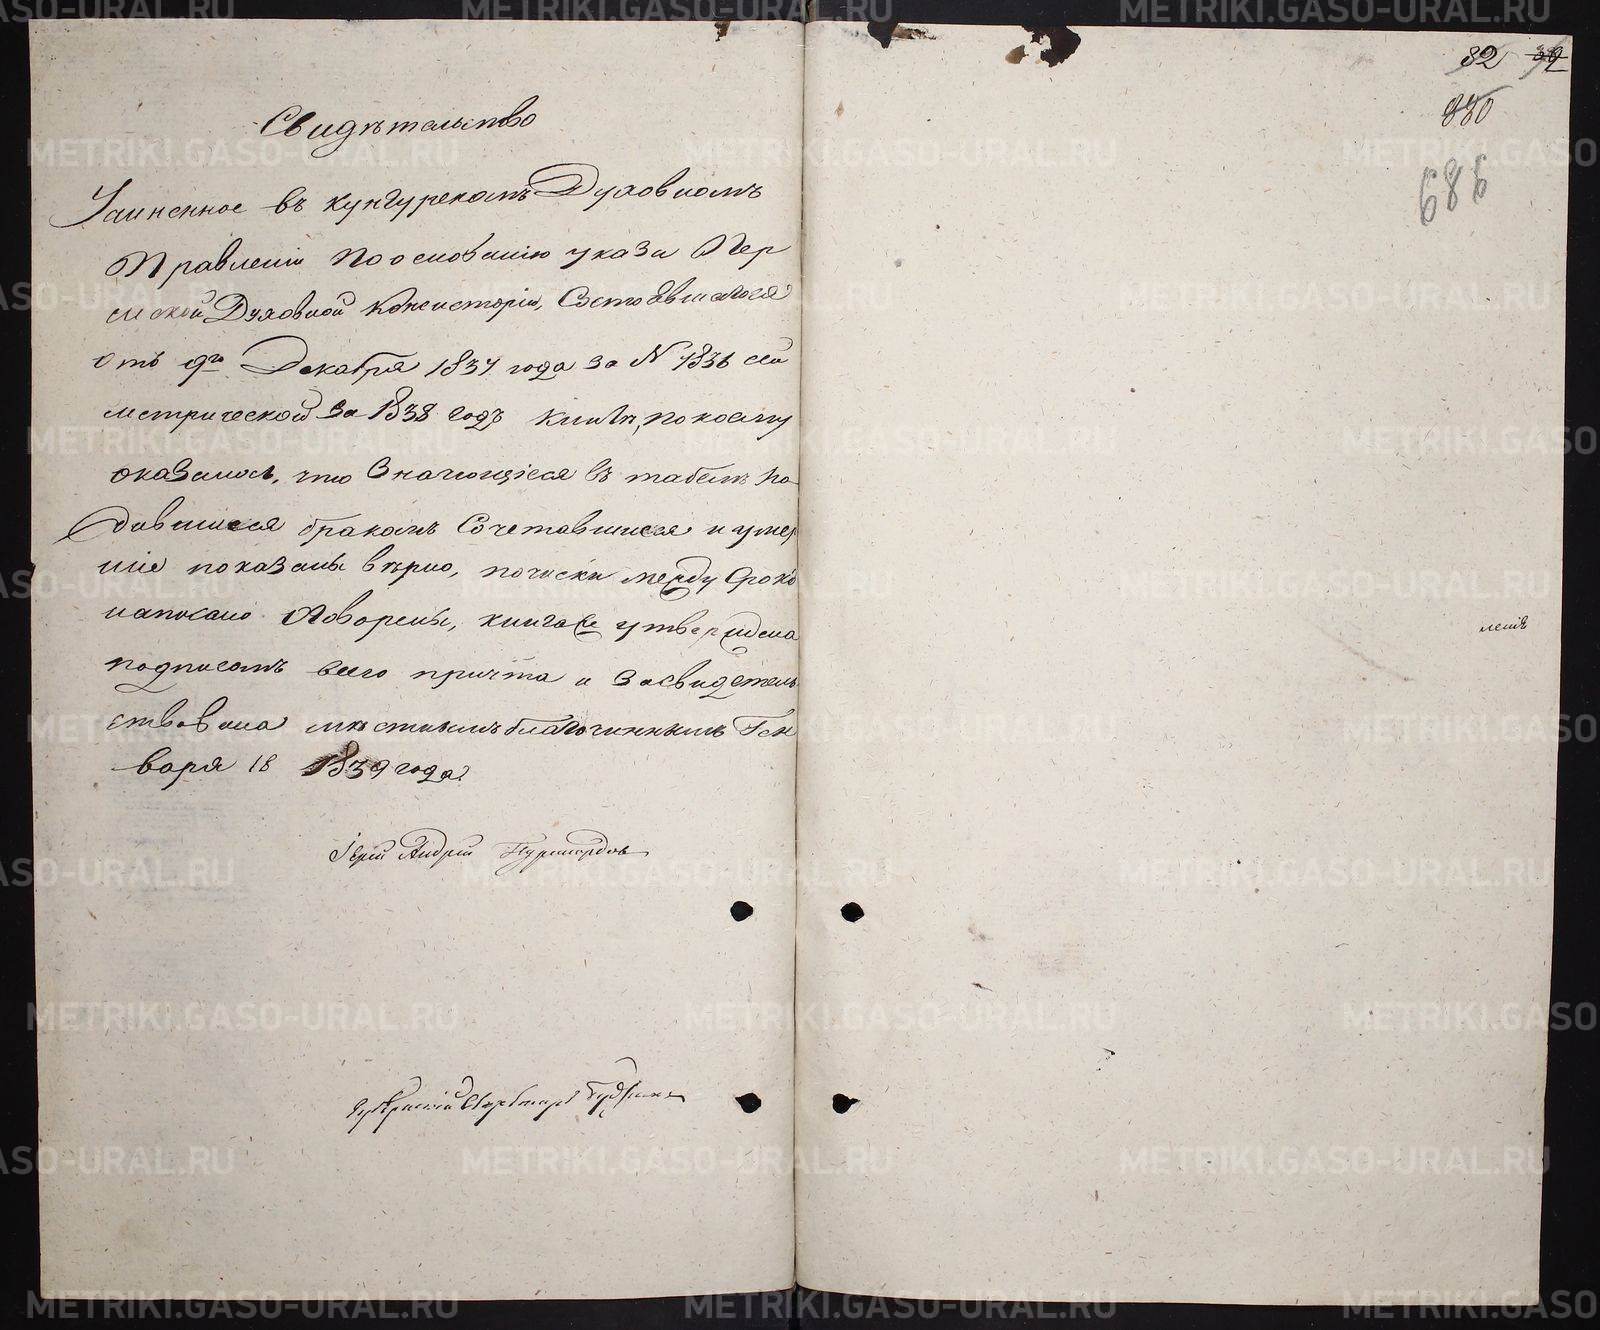 Свидѣтельство
Учиненное въ кунгурскомъ Духовномъ
Правленіи По основанію указа Пер
мской Духовной Консисторіи, Состоявшагося
отъ 9го Декабря 1837 года за № 7836 сей
метрической За 1838 годъ Книгѣ, по коему
оказалось, что Значющіеся въ табели Ро
дившiеся бракомъ Сочетавшиеся и умер
шіе показаны вѣрно, почиски между строкъ
написано оговорены, книга се утверждена
подписомъ всего причта и засвидѣтель
ствована мѣстнымъ благочиннымъ Ген
варя 18 1839 года.
Іерей Андрей
82 39
830
686
леніѣ
METRIKI.GASO-URAL.RU